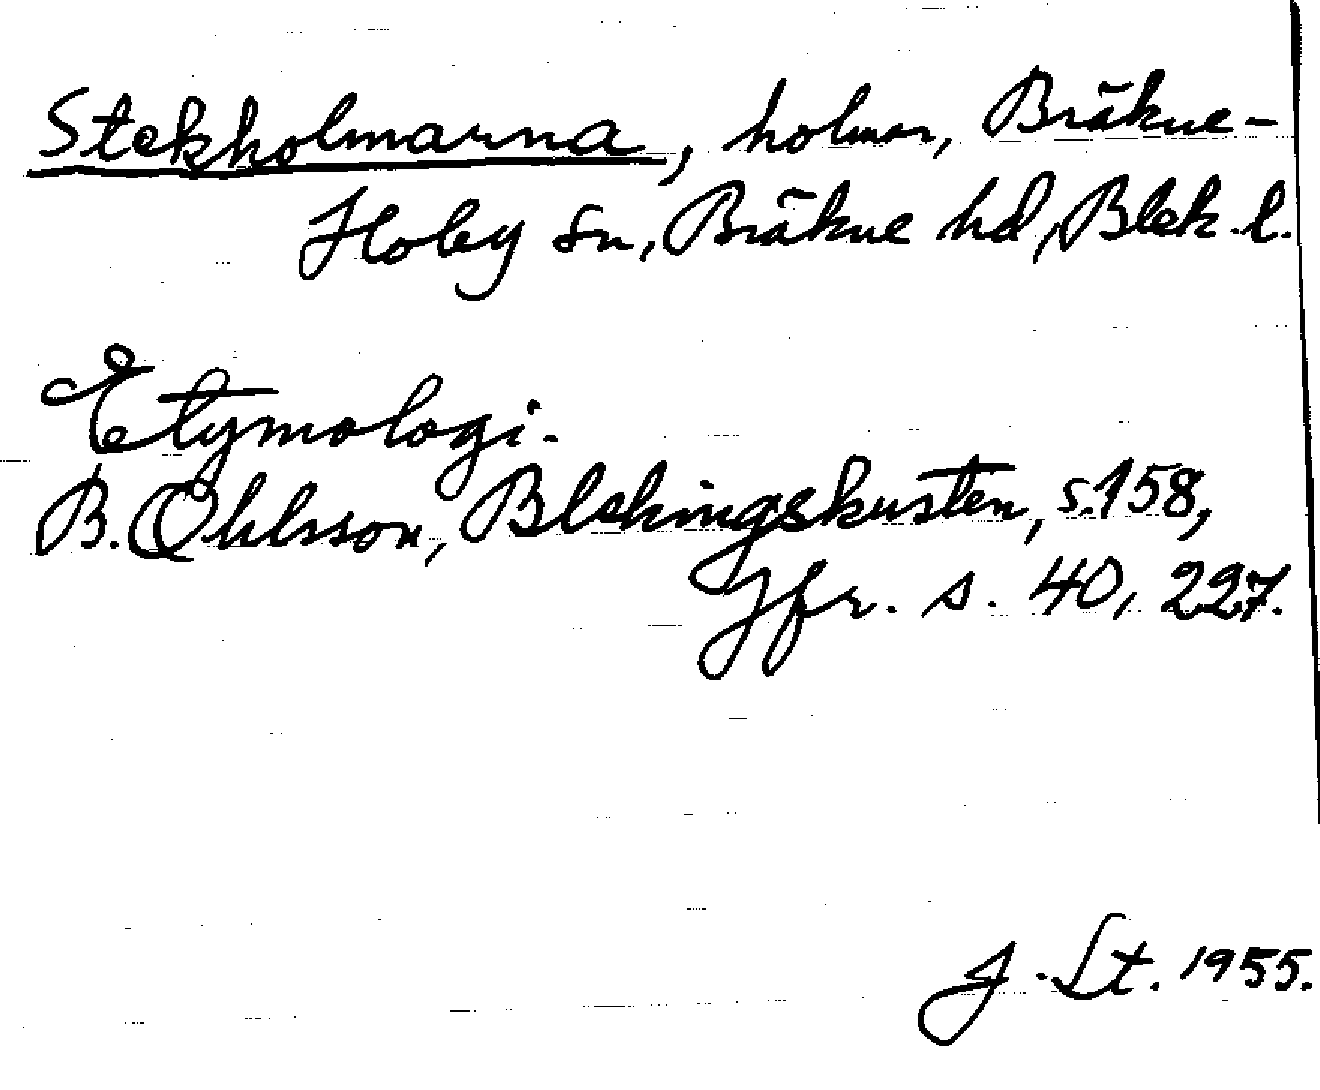 Stekholmarna, holmar, Bräkne-
Hoby sn, Bräkne hd, Blek. l.
Etymologi.
B. Ohlsson, Blekingskusten, s. 158,
Jfr. s. 40, 227.
J. St. 1955.